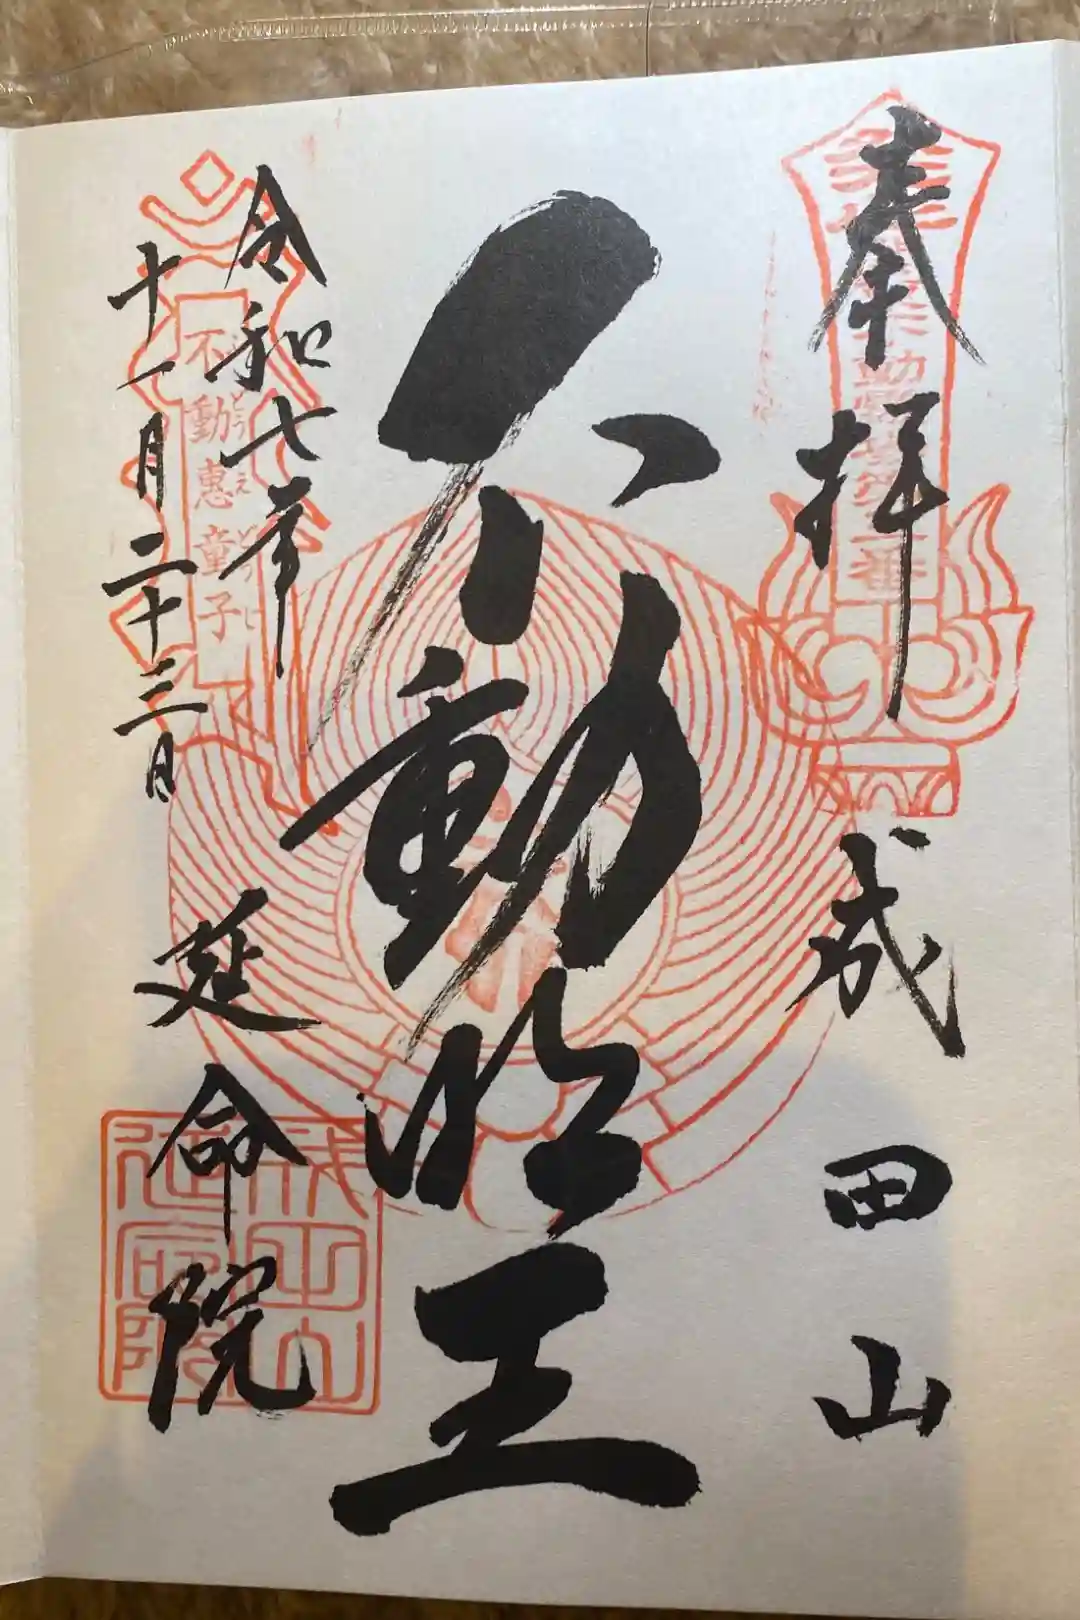 奉拝
成田山
不動明王
令和七年
十一月二十三日
不動恵童子
どう
え
どうじ
延命院
成田山
延命院